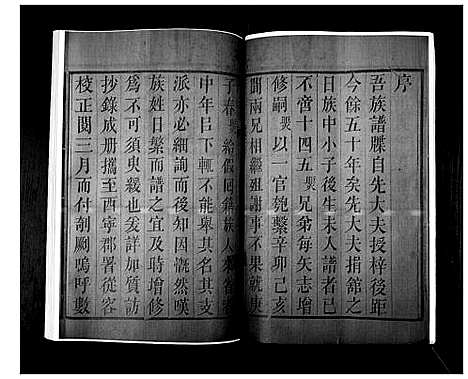 序
吾族譜牒自先大夫授梓後距
今餘五十年矣先大夫捐舘之
日族中小子後生未入譜者已
不啻十四五煚兄弟每矢志增
修嗣煚以一官匏繫辛卯己亥
間兩兄相繼殂謝事不果就庚
子春煚給假回籍族人來
中年巳下輒不能舉其支
派亦必細詢而后知因慨然嘆
族姓日繁而譜之宜及時增修
為不可須臾緩也爰詳加質訪
抄錄成册攜至酉寧郡署從容
校正閱三月而付剞劂嗚呼數